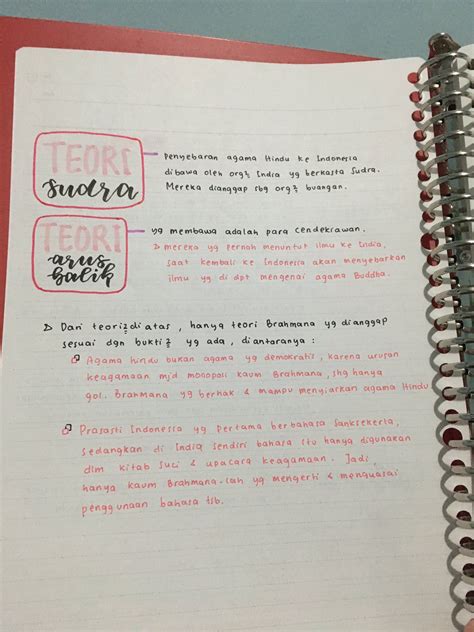 TEORI
Sudra
penyebaran agama Hindu ke Indonesia
dibawa oleh org² India yg berkasta Sudra.
Mereka dianggap sbg org² buangan.
TEORI
arus
balik
yg membawa adalah para cendekiawan.
mereka yg pernah menuntut ilmu ke India,
saat kembali ke Indonesia akan menyebarkan
ilmu yg di dpt mengenai agama Buddha.
Dari teori² diatas, hanya teori Brahmana yg dianggap
sesuai dgn bukti² yg ada, diantaranya :
Agama hindu bukan agama yg demokratis, karena urusan
keagamaan mjd monopoli kaum Brahmana, shg hanya
gol. Brahmana yg berhak & mampu menyiarkan agama Hindu
Prasasti Indonesia yg pertama berbahasa Sanksekerta,
sedangkan di India sendiri bahasa itu hanya digunakan
dlm kitab suci & upacara keagamaan. Jadi
hanya kaum Brahmana-lah yg mengerti & menguasai
penggunaan bahasa tsb.